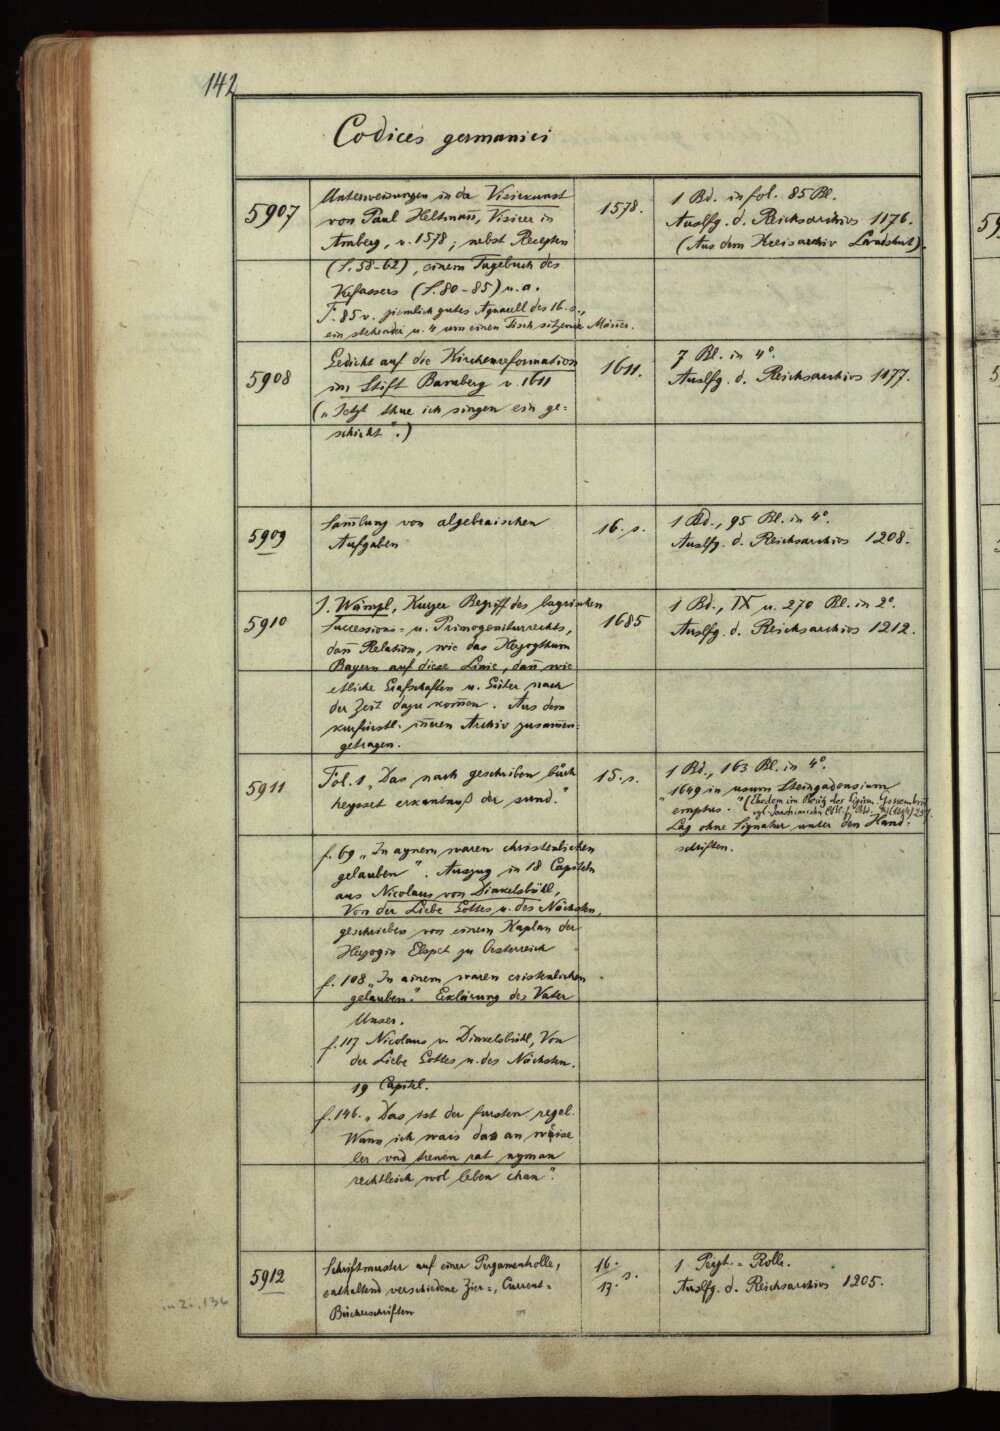 142
Codices germanici
5907
Unterweisungen in der Visierkunst
von Paul Heltmañ, Visirer in
Amberg, v. 1578, nebst Recepten
(S. 58-62), einem Tagebuch des
Vfassers (S. 80-85) u. a.
F. 85 v. ziemlich gutes Aquarell des 16. s.,
ein stehender u. 4 um einen Tisch sitzende Männer.
1578.
1 Bd. in fol. 85 Bl.
Auslfg. d. Reichsarchivs 1176.
(Aus dem Kreisarchiv Landshut).
5908
Gedicht auf die Kirchenreformation
im Stift Bamberg v. 1611
(„Jetzt thue ich singen ein ge=
schicht“.)
1611.
7 Bl. in 4°.
Auslfg. d. Reichsarchivs 1177.
5909
Sam̄lung von algebraischen
Aufgaben
16. s.
1 Bd., 95 Bl. in 4°.
Auslfg. d. Reichsarchivs 1208.
5910
J. Wämpl, Kurzer Begriff des bayrischen
Successions- u. Primogeniturrechts,
dañ Relation, wie das Herzogthum
Bayern auf diese Linie, dañ wie
etliche Grafschaften u. Güter nach
der Zeit dazu kom̄en. Aus dem
kurfürstl. iñeren Archiv zusam̄en=
getragen.
1685
1 Bd., IX u. 270 Bl. in 2°.
Auslfg. d. Reichsarchivs 1212.
5911
Fol. 1 „Das nach geschriben bůch
heysset erkantnuß der sund.“
f. 69 „In aynem waren christenlichen
gelauben“. Auszug in 18 Capiteln
aus Nicolaus von Dinkelsbühl,
Von der Liebe Gottes u. des Nächsten,
geschrieben von einem Kaplan der
Herzogin Elspet zu Oesterreich
f. 108 „In ainem waren cristenlichen
gelauben.“ Erklärung des Vater
Unser.
f. 117 Nicolaus v. Dinkelsbühl, Von
der Liebe Gottes u. des Nächsten.
19 Capitel.
f. 146. „Das ist der fursten regel.
Wann ich wais das an weise
ler vnd trewen rat nyman
rechtleich wol leben chan“.
15. s.
1 Bd., 163 Bl. in 4°.
„1649 in usum Steingadensium
emptus.“ (Ehedem im Besitz des Sigism. Gossembrot
vgl.
Lag ohne Signatur unter den Hand=
schriften.
5912
Schriftmuster auf einer Pergamentrolle,
enthaltend verschiedene Zier-, Current-
Bücherschriften
16.
17. s.
1 Pergt.-Rolle.
Auslfg. d. Reichsarchivs 1205.